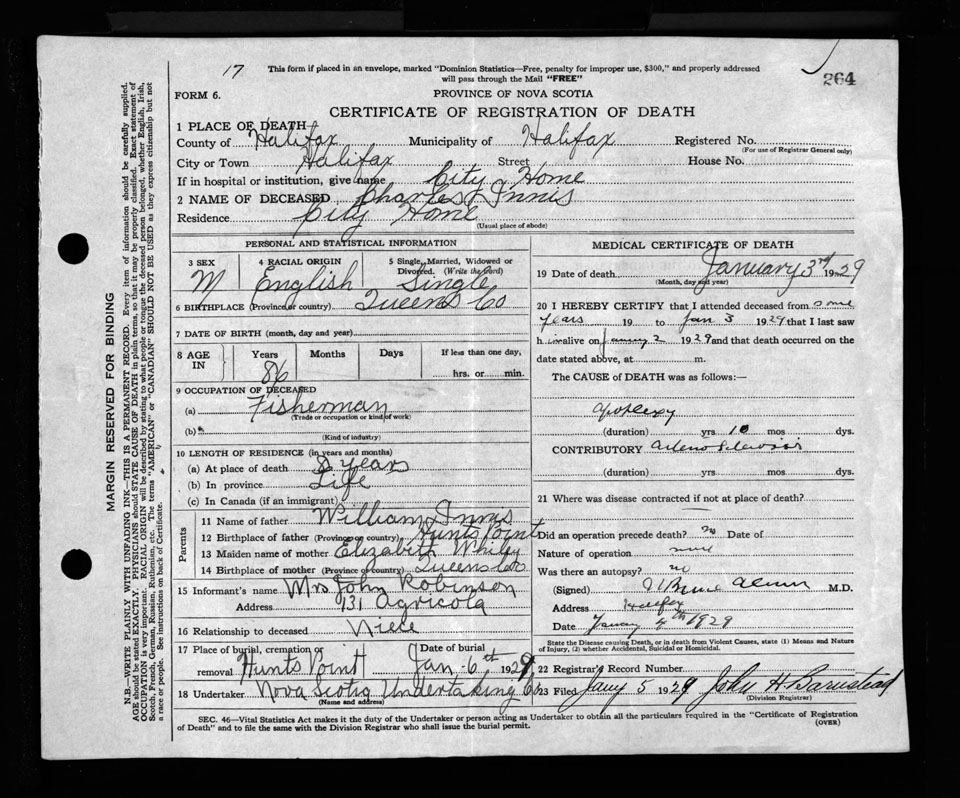 17 This form if placed in an envelope, marked "Dominion Statistics—Free, penalty for improper use, $300," and properly addressed
will pass through the Mail "FREE"
264
FORM 6.
PROVINCE OF NOVA SCOTIA
CERTIFICATE OF REGISTRATION OF DEATH
1 PLACE OF DEATH
County of Halifax Municipality of Halifax Registered No.
(For use of Registrar General only)
City or Town Halifax Street House No.
If in hospital or institution, give name City Home
2 NAME OF DECEASED Charles Innis
Residence City Home
(Usual place of abode)
PERSONAL AND STATISTICAL INFORMATION
3 SEX 4 RACIAL ORIGIN 5 Single, Married, Widowed or
Divorced. (Write the word)
M English Single
6 BIRTHPLACE (Province or country) Queens Co
7 DATE OF BIRTH (month, day and year)
8 AGE IN Years Months Days If less than one day,
86 hrs. or min.
9 OCCUPATION OF DECEASED
(a) Fisherman
(Trade or occupation or kind of work)
(b)
(Kind of industry)
10 LENGTH OF RESIDENCE (in years and months)
(a) At place of death 8 years
(b) In province Life
(c) In Canada (if an immigrant)
Parents
11 Name of father William Innis
12 Birthplace of father (Province or country) Hunts Point
13 Maiden name of mother Elizabeth
14 Birthplace of mother (Province or country) Queens Co
15 Informant's name Mrs John Robinson
Address 131 Agricola
16 Relationship to deceased Niece
17 Place of burial, cremation or Date of burial
removal Hunts Point Jan 6th 1929
18 Undertaker Nova Scotia Undertaking Co
(Name and address)
MEDICAL CERTIFICATE OF DEATH
19 Date of death January 3rd 1929
(Month, day and year)
20 I HEREBY CERTIFY that I attended deceased from some
years 19 to Jan 3 1929 that I last saw
him alive on January 2 1929 and that death occurred on the
date stated above, at m.
The CAUSE of DEATH was as follows:
apoplexy
(duration) yrs 10 mos dys.
CONTRIBUTORY
(duration) yrs. mos. dys.
21 Where was disease contracted if not at place of death?
Did an operation precede death? no Date of
Nature of operation none
Was there an autopsy? no
(Signed) M.D.
Address Halifax
Date January 4th 1929
State the Disease causing Death, or in death from Violent Causes, state (1) Means and Nature
of Injury, (2) whether Accidental, Suicidal or Homicidal.
22 Registrar's Record Number
23 Filed Jany 5 1929 John H Barnstead
(Division Registrar)
SEC. 46—Vital Statistics Act makes it the duty of the Undertaker or person acting as Undertaker to obtain all the particulars required in the "Certificate of Registration
of Death" and to file the same with the Division Registrar who shall issue the burial permit.
(OVER)
MARGIN RESERVED FOR BINDING
N.B.—WRITE PLAINLY WITH UNFADING INK—THIS IS A PERMANENT RECORD. Every item of information should be carefully supplied.
AGE should be stated EXACTLY. PHYSICIANS should STATE CAUSE OF DEATH in plain terms, so that it may be properly classified. Exact statement of
OCCUPATION is very important. RACIAL ORIGIN will be described by stating to what people or tongue the deceased person belonged, whether English, Irish,
Scotch, French, German, Russian, Ruthenian, etc. The terms "AMERICAN" or "CANADIAN" SHOULD NOT BE USED as they express citizenship but not
a race or people. See instructions on back of Certificate.